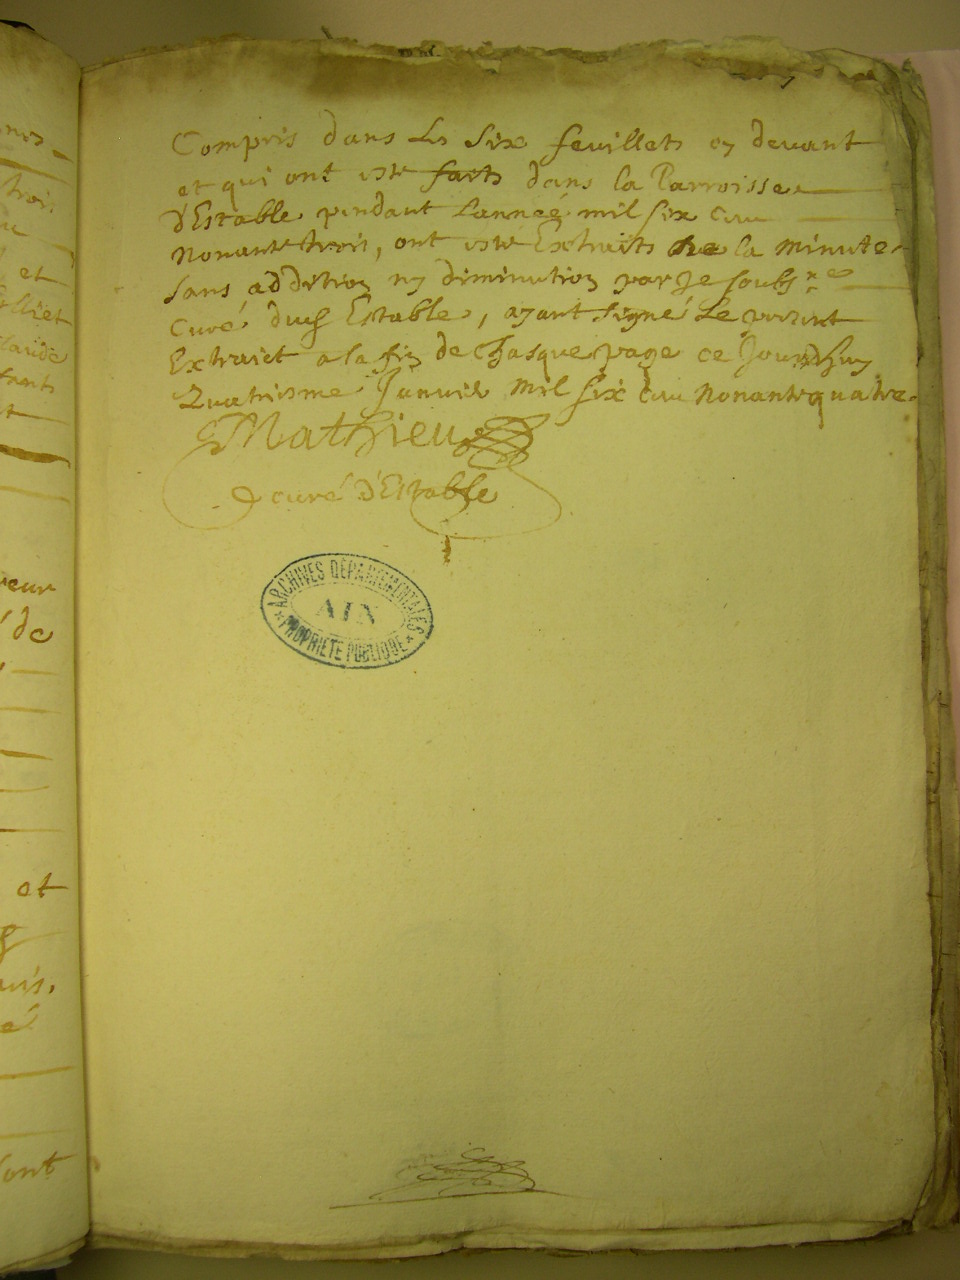 Compris dans Les Six feuillets cy devant
et qui ont esté faits dans la Parroisse
d'Estable pendant Lanneé mil six cens
Nonante trois, ont esté Extraits de la minute
sans addition ny diminution par Je soubs.né
Curé dud Estable, ayant signé Le present
Extraict a la fin de chasque page ce Jourdhuy
Quatriesme Janvier Mil six cens Nonante quatre
Mathieu
curé d'Estable
ARCHIVES DÉPARTEMENTALES
AIN
PROPRIÉTÉ PUBLIQUE
troi
et
laude
fants
de
et
sont